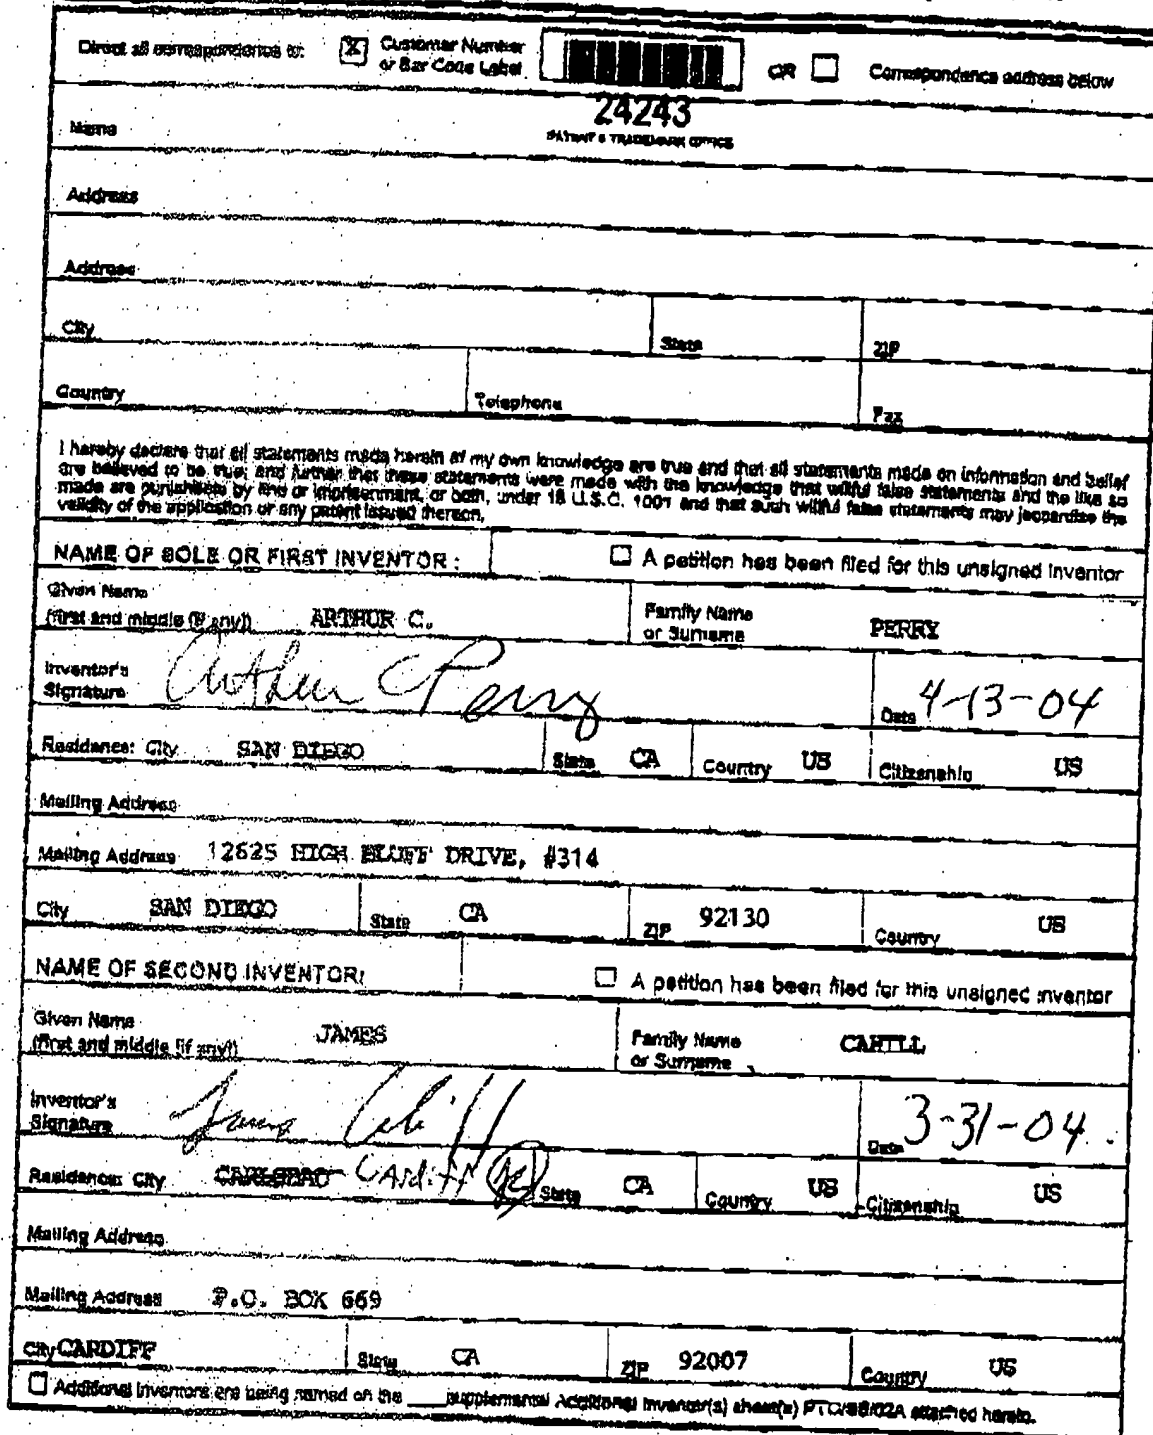 Direct all correspondence to: [X] Customer Number or Bar Code Label OR ☐ Correspondence address below
24243
PATENT & TRADEMARK OFFICE
Name
Address
Address
City State ZIP
Country Telephone Fax
I hereby declare that all statements made herein of my own knowledge are true and that all statements made on information and belief
are believed to be true; and further that these statements were made with the knowledge that willful false statements and the like so
made are punishable by fine or imprisonment, or both, under 18 U.S.C. 1001 and that such willful false statements may jeopardize the
validity of the application or any patent issued thereon.
NAME OF SOLE OR FIRST INVENTOR : ☐ A petition has been filed for this unsigned inventor
Given Name
(first and middle (if any)) ARTHUR C. Family Name or Surname PERRY
Inventor's Signature Arthur C Perry Date 4-13-04
Residence: City SAN DIEGO State CA Country US Citizenship US
Mailing Address
Mailing Address 12625 HIGH BLUFF DRIVE, #314
City SAN DIEGO State CA ZIP 92130 Country US
NAME OF SECOND INVENTOR: ☐ A petition has been filed for this unsigned inventor
Given Name
(first and middle (if any)) JAMES Family Name or Surname CAHILL
Inventor's Signature James Cahill Date 3-31-04
Residence: City CARLSBAD Cardiff State CA Country US Citizenship US
Mailing Address
Mailing Address P.O. BOX 669
City CARDIFF State CA ZIP 92007 Country US
☐ Additional inventors are being named on the ___ supplemental Additional Inventor(s) sheet(s) PTO/SB/02A attached hereto.